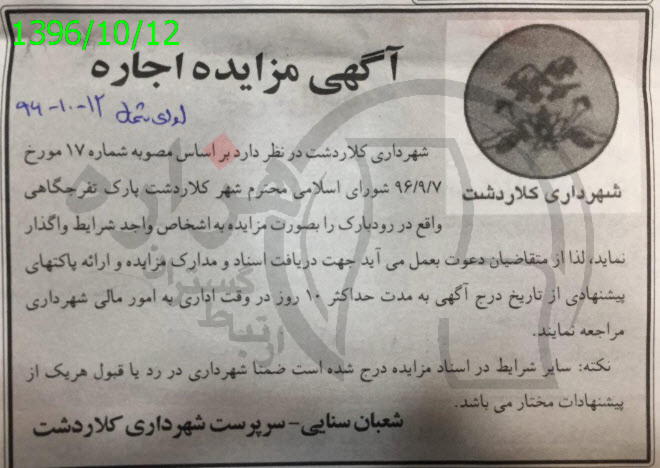 1396/10/12
آگهی مزایده اجاره
۹۶-۱۰-۱۲
شهرداری کلاردشت
شهرداری کلاردشت در نظر دارد بر اساس مصوبه شماره ۱۷ مورخ
۹۶/۹/۷ شورای اسلامی محترم شهر کلاردشت پارک تفرجگاهی
واقع در رودبارک را بصورت مزایده به اشخاص واجد شرایط واگذار
نماید، لذا از متقاضیان دعوت بعمل می آید جهت دریافت اسناد و مدارک مزایده و ارائه پاکتهای
پیشنهادی از تاریخ درج آگهی به مدت حداکثر ۱۰ روز در وقت اداری به امور مالی شهرداری
مراجعه نمایند.
نکته: سایر شرایط در اسناد مزایده درج شده است ضمنا شهرداری در رد یا قبول هریک از
پیشنهادات مختار می باشد.
شعبان سنایی- سرپرست شهرداری کلاردشت
هزاره
گستران
ارتباط